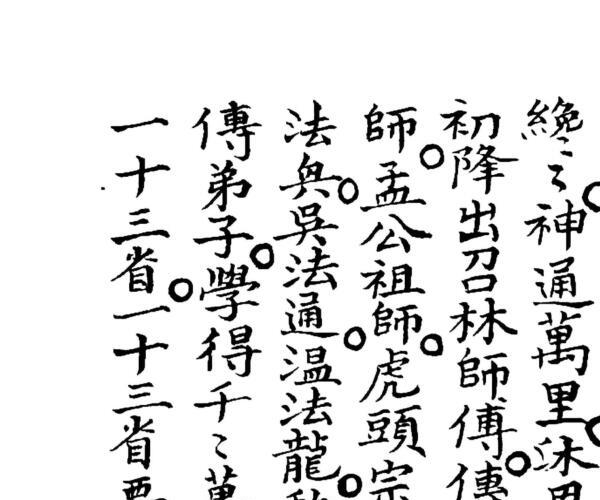 纔〻神通萬里
初降。出召林師傅。傳
師孟公祖師。虎頭宗
法與。吳法通。温法龍
傳弟子。學得千〻萬
一十三省。一十三省